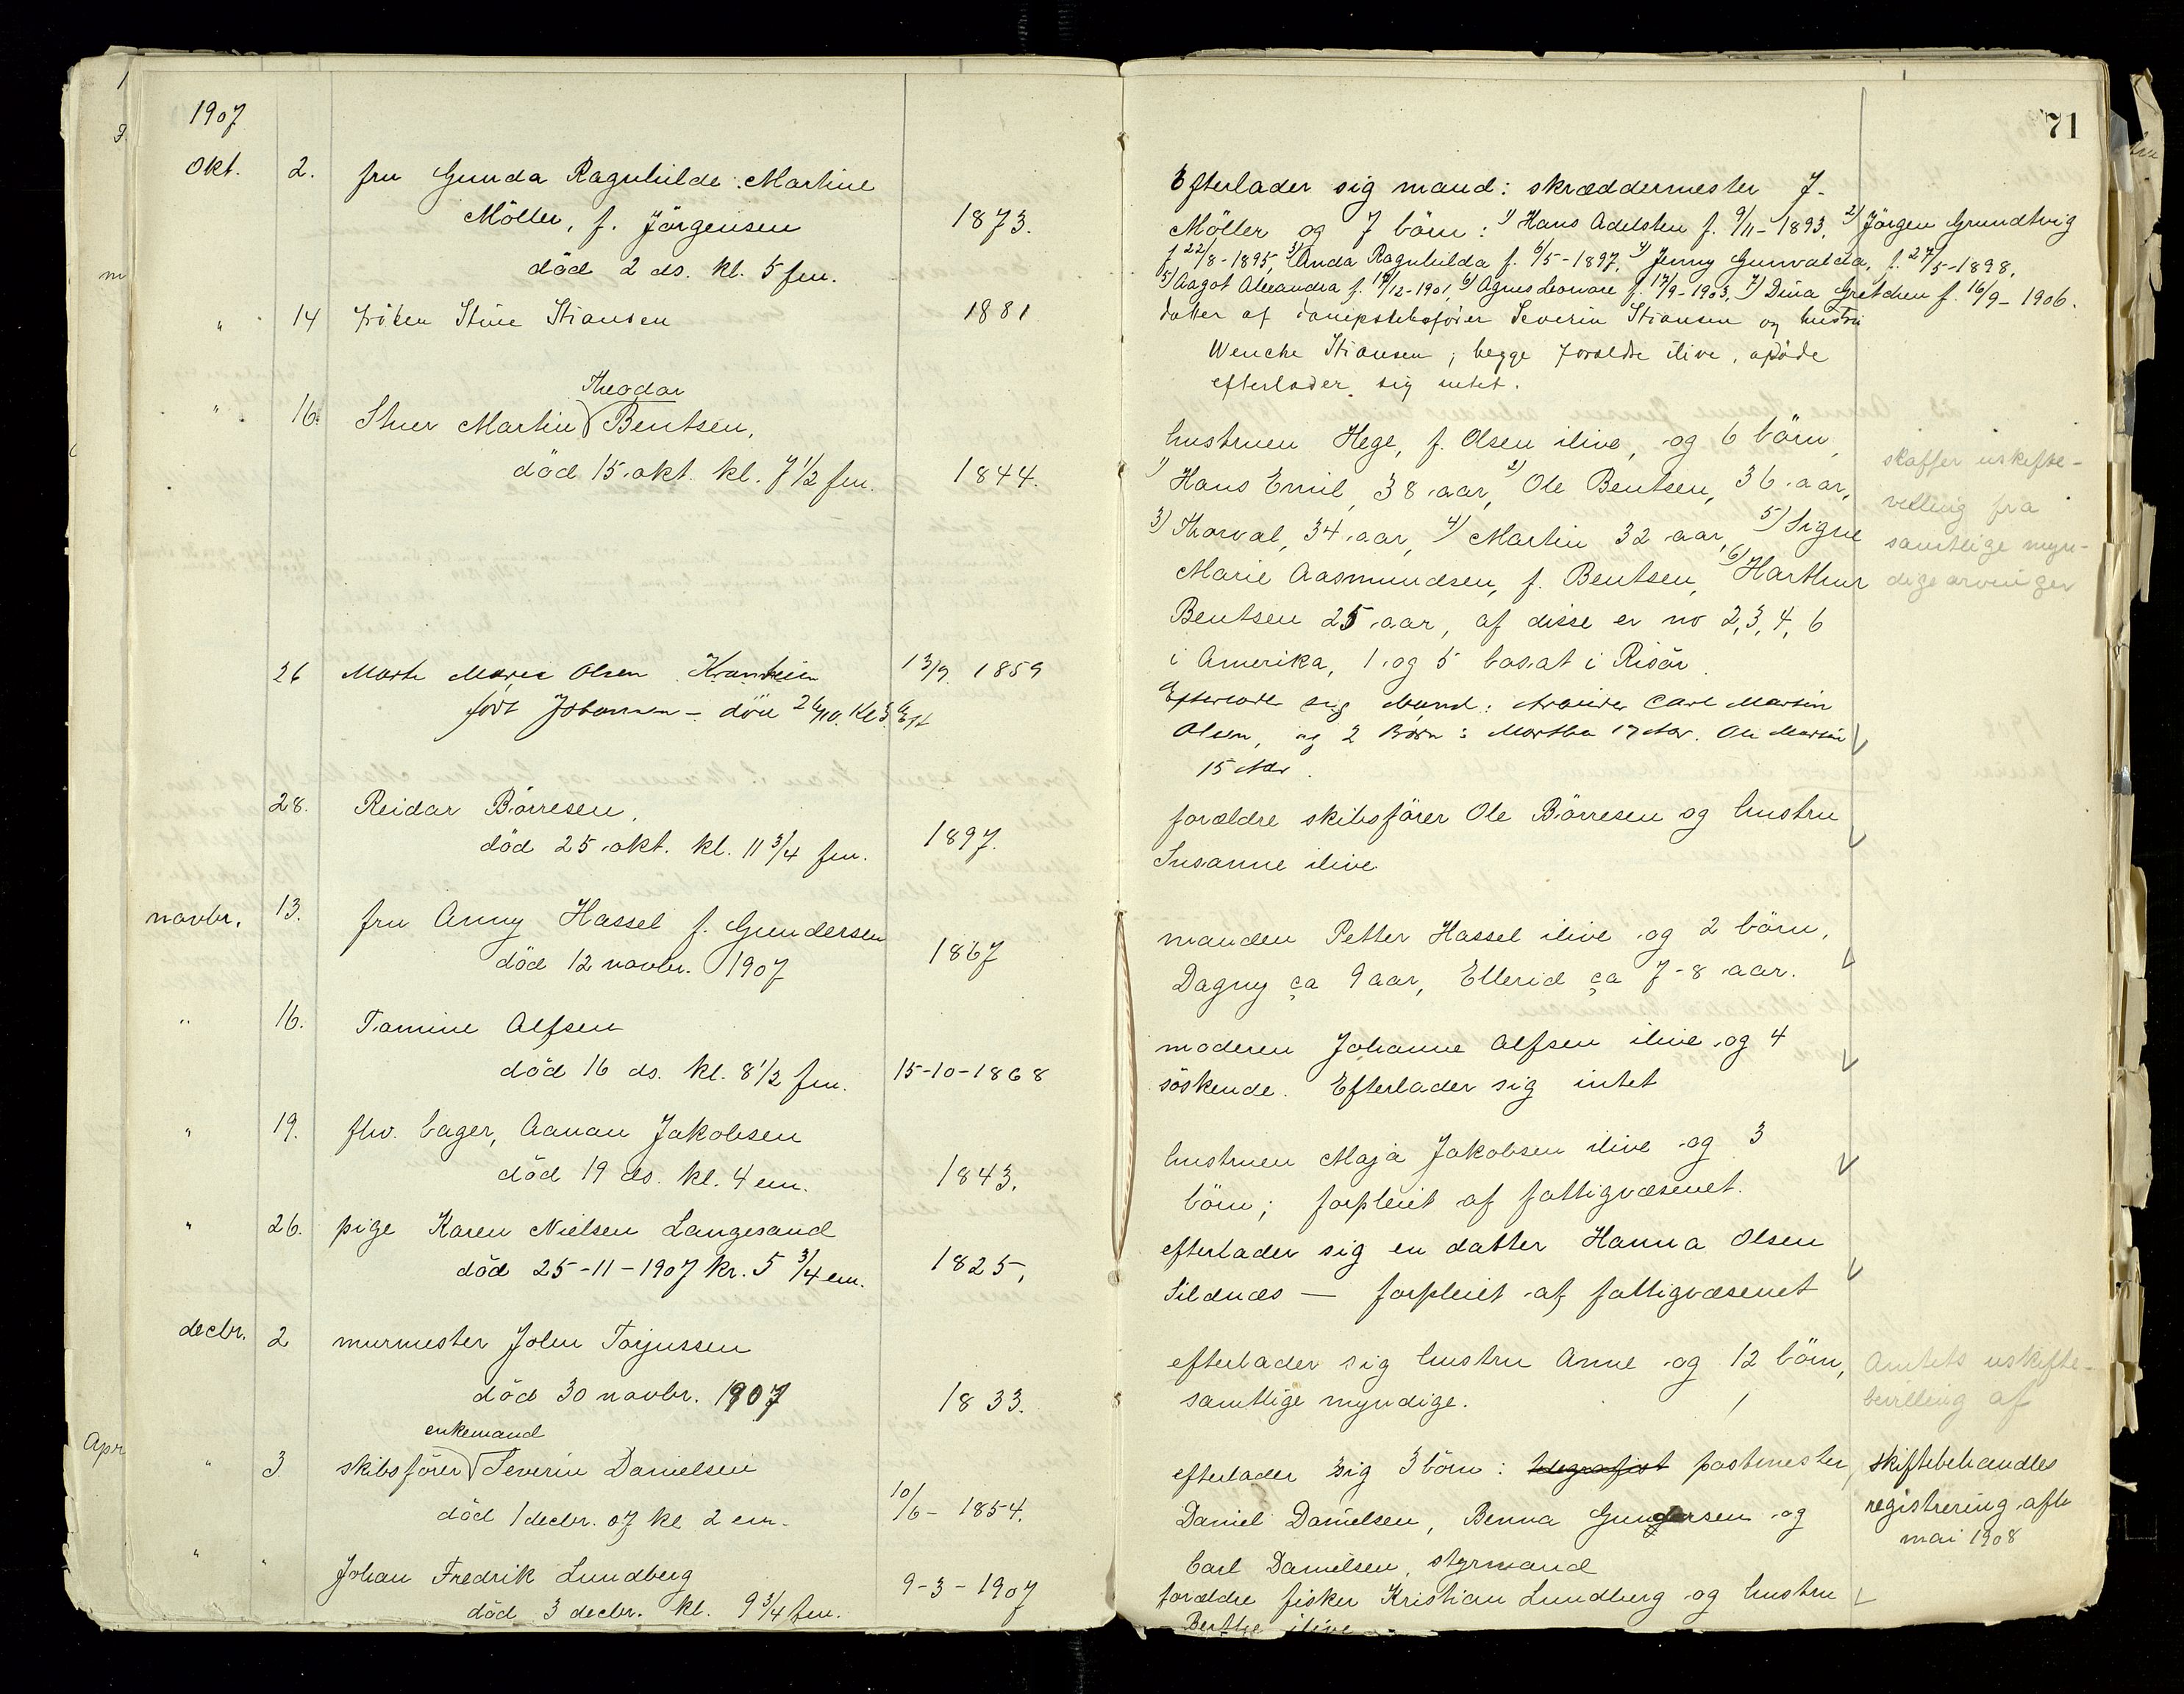 71
1907
Okt. 2. fru Gunda Ragnhilde Martine
Möller, f. Jörgensen 1873.
död 2 ds. kl. 5 fm.
Efterlader sig mand: skræddermester J.
Möller og 7 börn: 1) Hans Adelsten f. 9/11-1893. 2) Jörgen Grundtvig
f 22/8-1895, 3) Anda Ragnhilda f. 6/5-1897. 4) Jenny Gunvalda, f. 27/5-1898.
5) Aagot Alexandra f. 19/12-1901, 6) Agnes Leonore f. 17/9-1903. 7) Dina Gretchen f. 16/9-1906.
" 14 Fröken Stine Stiansen 1881
datter af dampskibsförer Severin Stiansen og hustru
Wenche Stiansen; begge forældre ilive, afdöde
efterlader sig intet.
Theodor
" 16. Stuer Martin Bentsen,
död 15 okt. kl. 7 1/2 fm. 1844.
hustruen Hege, f. Olsen ilive, og 6 börn,
1) Hans Emil, 38 aar, 2) Ole Bentsen, 36 aar,
3) Thorval, 34 aar, 4) Martin 32 aar, 5) Signe
Marie Aasmundsen, f. Bentsen, 6) Harthur
Bentsen 25 aar, af disse er no 2, 3, 4, 6
i Amerika, 1 og 5 bosat i Risör.
skaffer uskifte-
villing fra
samtlige myn-
dige arvinger
26 Marte Marie Olsen Kranheim 13/9 1859
född Johansen - död 26/10. Kl 5 Eft
Efterlader sig Mand: Arbeider Carl Martin
Olsen, og 2 Børn: Martha 17 Aar. Ole Martin
15 Aar.
28. Reidar Börresen,
död 25 okt. kl. 11 3/4 fm. 1897.
forældre skibsförer Ole Börresen og hustru
Susanne ilive
novbr. 13. fru Anny Hassel f. Gundersen
död 12 novbr. 1907 1867
manden Petter Hassel ilive og 2 börn,
Dagny ca 9 aar, Ellerid ca 7-8 aar.
" 16. Tomine Alfsen
död 16 ds. kl. 8 1/2 fm. 15-10-1868
moderen Johanne Alfsen ilive og 4
söskende. Efterlader sig intet
" 19. fhv. bager, Aanan Jakobsen
död 19 ds. kl. 4 em. 1843.
hustruen Maja Jakobsen ilive og 3
börn; forpleiet af fattigvæsenet.
" 26. pige Karen Nielsen Langesand
död 25-11-1907 kr. 5 3/4 em. 1825,
efterlader sig en datter Hanna Olsen
Sildnæs — forpleiet af fattigvæsenet
decbr. 2 murmester John Torjussen
död 30 novbr. 1907 1833.
efterlader sig hustru Anne og 12 börn,
samtlige myndige.
Amtets uskifte-
bevilling af
Apr
enkemand
" 3. skibsförer Severin Danielsen
död 1 decbr. 07 kl 2 em. 10/6 - 1854.
efterlader sig 3 börn: telegrafist postmester
Daniel Danielsen, Benna Gundersen og
Carl Danielsen, styrmand
skiftebehandles
registrering afh
mai 1908
" " Johan Fredrik Lundberg
död 3 decbr. kl. 9 3/4 fm. 9-3-1907
forældre fisker Kristian Lundberg og hustru
Berthe ilive